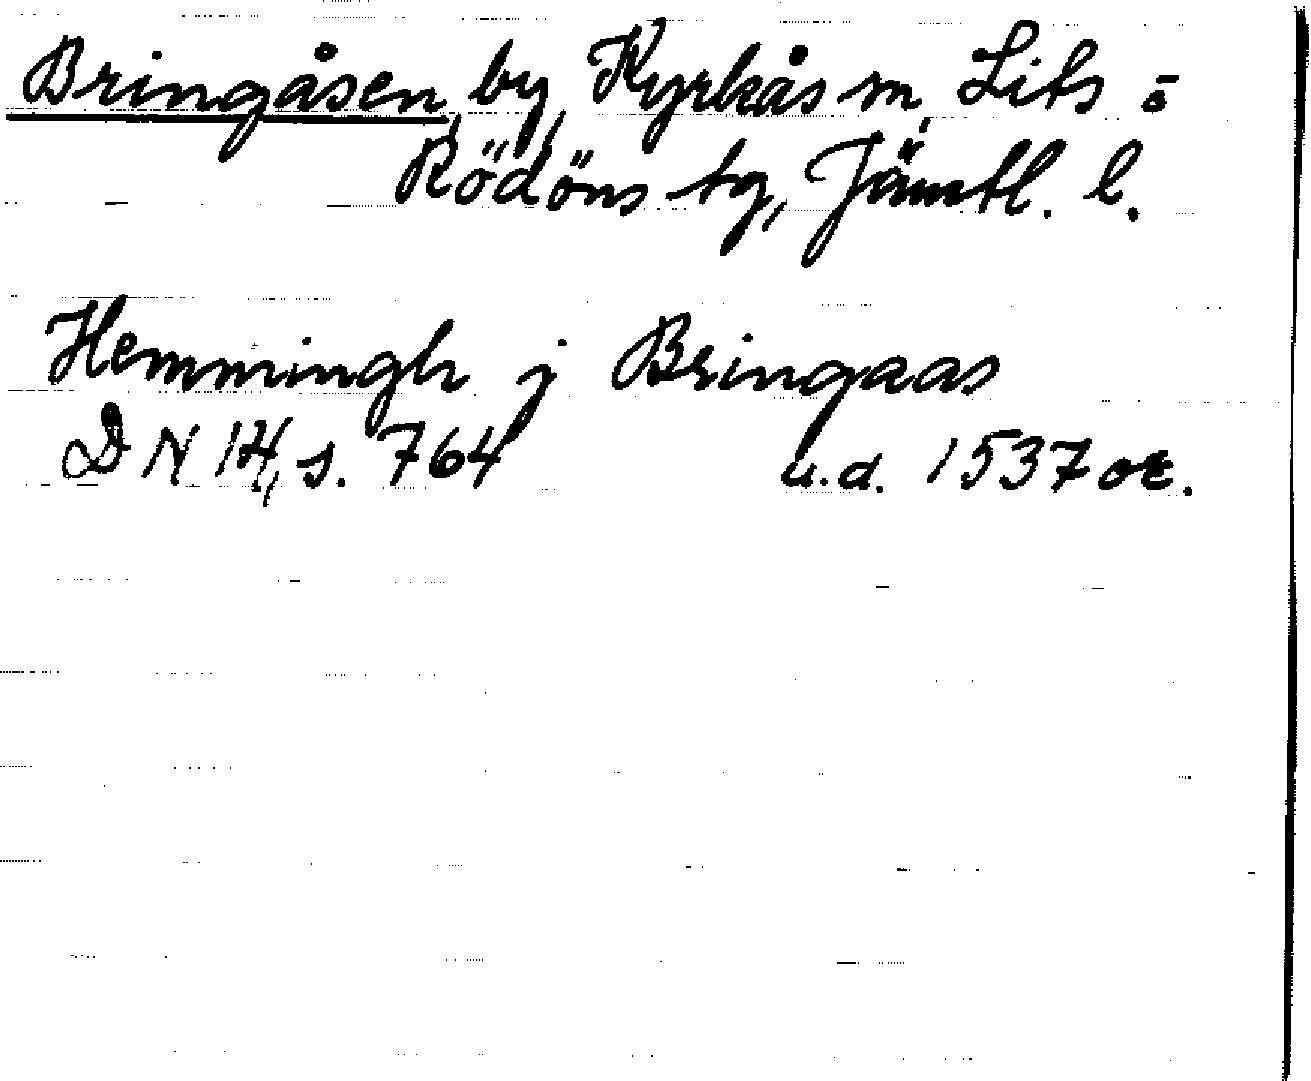 Bringåsen, by, Kyrkås sn, Lits o
Rödöns tg, Jämtl. l.
Hemmingh j Bringaas
DN 14, s. 764 u.d. 1537 or.